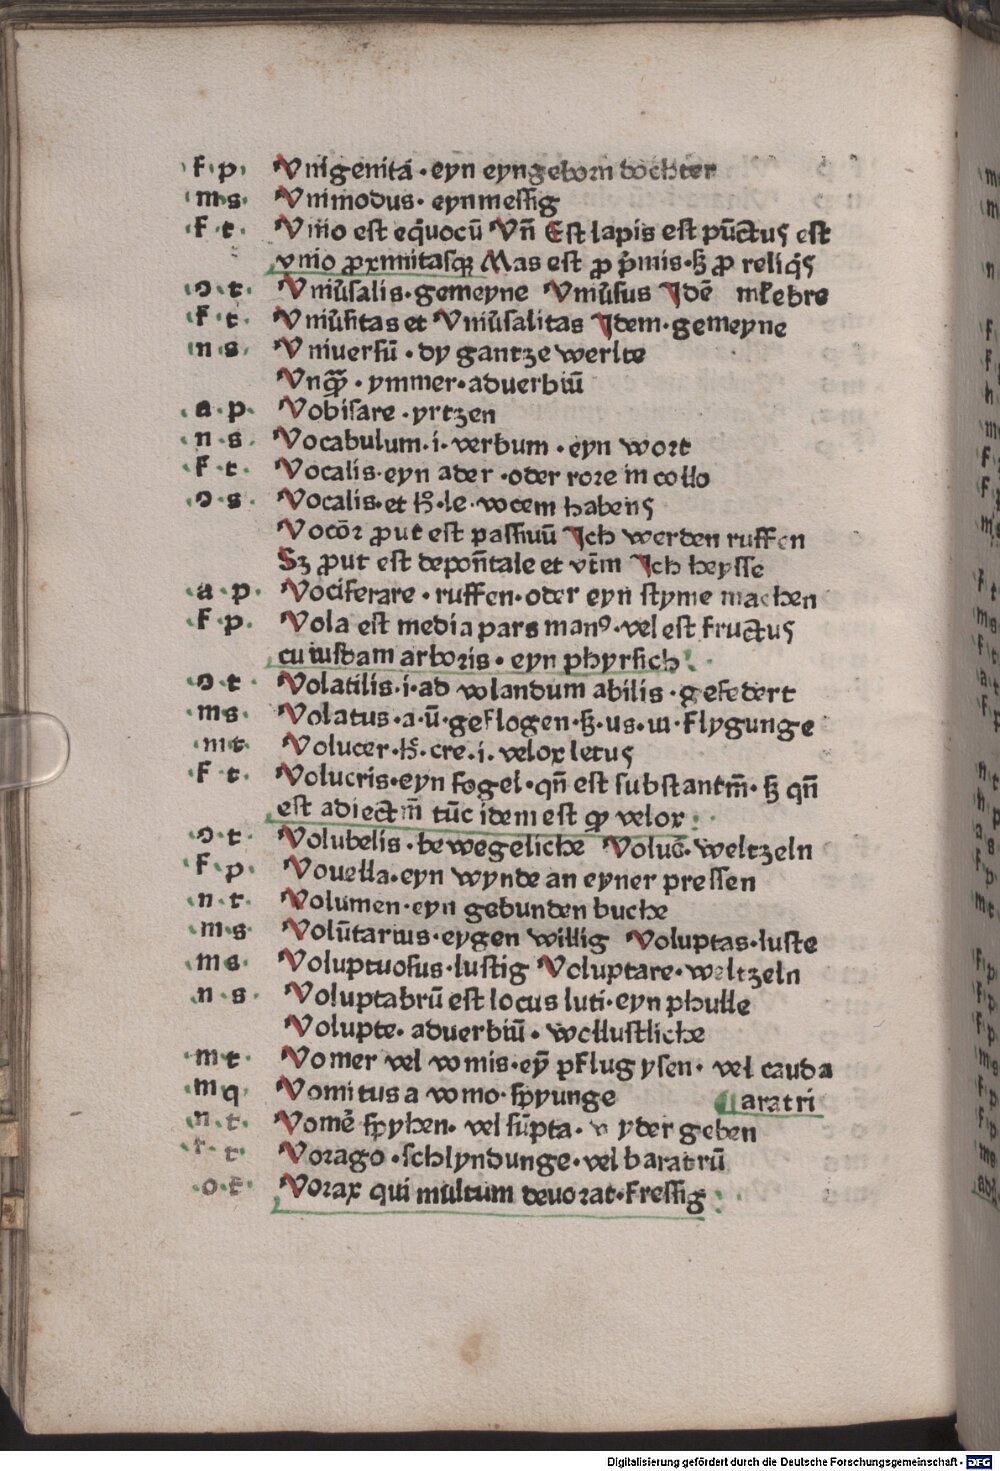 f · p · Vnigenita · eyn eyngeborn dochter
m s · Vnimodus · eynmessig
f · t · Vnio est eq̃uocũ Vñ Est lapis est pũctus est
vnio ꝓxmitasqꝫ Mas est ꝓ p̃mis · sꝫ ꝓ reliq̃s
o · t · Vniũsalis · gemeyne Vniũsus Idẽ
f · t · Vniũsitas et Vniũsalitas Idem · gemeyne
n s · Vniuersũ · dy gantze werlte
Vnqᷓ · ymmer · aduerbiũ
a · p · Vobisare · yrtzen
n · s · Vocabulum · i · verbum · eyn wort
f · t · Vocalis · eyn ader · oder rore in collo
o · s · Vocalis · et h̊ · le · vocem habens
Vocoꝛ̃ ꝓut est passiuũ Ich werden ruffen
Sꝫ ꝓut est depoñtale et vtm̃ Ich heysse
a · p · Vociferare · ruffen · oder eyn styme machen
f · p · Vola est media pars manꝰ · vel est fructus
cuiusdam arboris · eyn phyrsich
o · t · Volatilis · i · ad volandum abilis · gefedert
m s · Volatus · a · ũ · geflogen · sꝫ · us · ui · flygunge
m t · Volucer · h̊ · cre · i · velox letus
f t · Volucris · eyn fogel · qñ est substantm̃ · sꝫ qñ
est adiectm̃ tũc idem est qᷓ velox
o · t · Volubelis · bewegeliche Voluc̃ · weltzeln
f · p · Vouella · eyn wynde an eyner pressen
n · t · Volumen · eyn gebunden buche
m · s Volũtarius · eygen willig Voluptas · luste
m s · Voluptuosus · lustig Voluptare · weltzeln
n · s · Voluptabrũ est locus luti · eyn phulle
Volupte · aduerbiũ · wollustliche
m t · Vomer vel vomis · eỹ pflug ysen · vel cauda
m q · Vomitus a vomo · spyunge aratri
n · t · Vomẽ spyhen · vel sũpta · yder geben
t · Vorago · schlyndunge · vel baratrũ
o t · Vorax qui multum deuorat · fressig
Digitalisierung gefördert durch die Deutsche Forschungsgemeinschaft - DFG